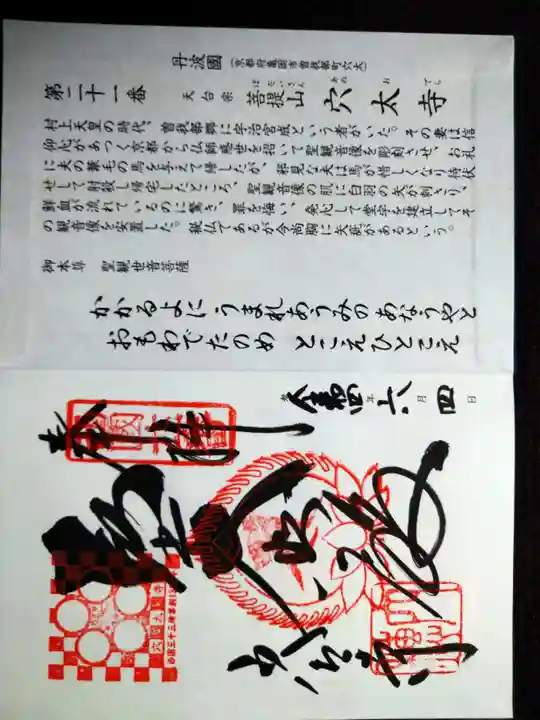 丹波國（京都府亀岡市曽我部町穴太）
第二十一番 天台宗 菩提山 穴太寺
ぼだいさん あな お てら
村上天皇の時代、曽我部郷に宇治宮成という者がいた。その妻は信
仰心があつく京都から仏師感世を招いて聖観音像を彫刻させ、お礼
に夫の秘蔵の馬を与えて帰したが、邪見な夫は馬が惜しくなり待伏
せして射殺し帰宅したところ、聖観音像の肌に白羽の矢が刺さり、
鮮血が流れているのに驚き、罪を悔い、発心して堂宇を建立してそ
の観音像を安置した。秘仏であるが今尚胸に矢疵があるという。
御本尊 聖観世音菩薩
かかるよに うまれあうみの あなうやと
おもわでたのめ とこえひとこえ
令和四年六月四日
奉拝
穴太寺